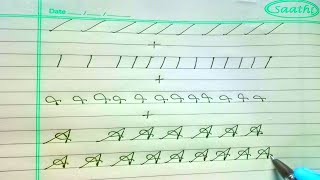 Date ..../..../.... Saathi
+
+
+
A A A A A A A A
A A A A A A A A A